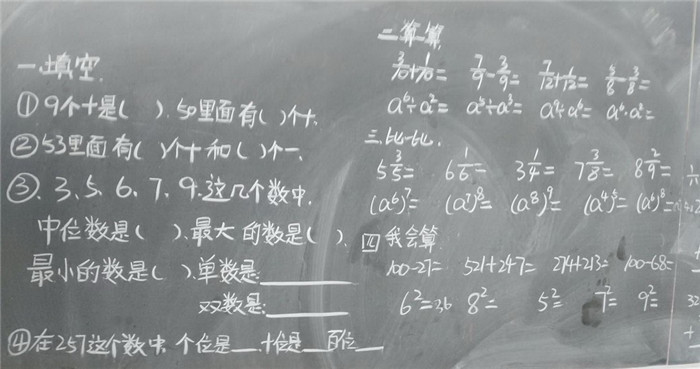 一、填空.
①9个十是( ).50里面有( )个十.
②53里面有( )个十和( )个一.
③、3、5、6、7、9.这几个数中.
中位数是( )、最大的数是( ).
最小的数是( ).单数是:______
双数是:______
④在257这个数中.个位是__十位是__百位__
二算一算.
3/10+1/10= 7/9-3/9= 7/12+1/12= 5/8-3/8=
a⁶÷a²= a⁵÷a³= a⁹÷a⁶= a⁶·a²=
三.比一比.
5 3/5= 6 1/6= 3 1/4= 7 3/8= 8 2/9=
(a⁶)⁷= (a⁷)⁸= (a⁸)⁹= (a⁴)⁵= (a⁶)⁸=
四我会算.
100-27= 521+247= 274+213= 100-68=
6²=36 8²= 5²= 7²= 9²=